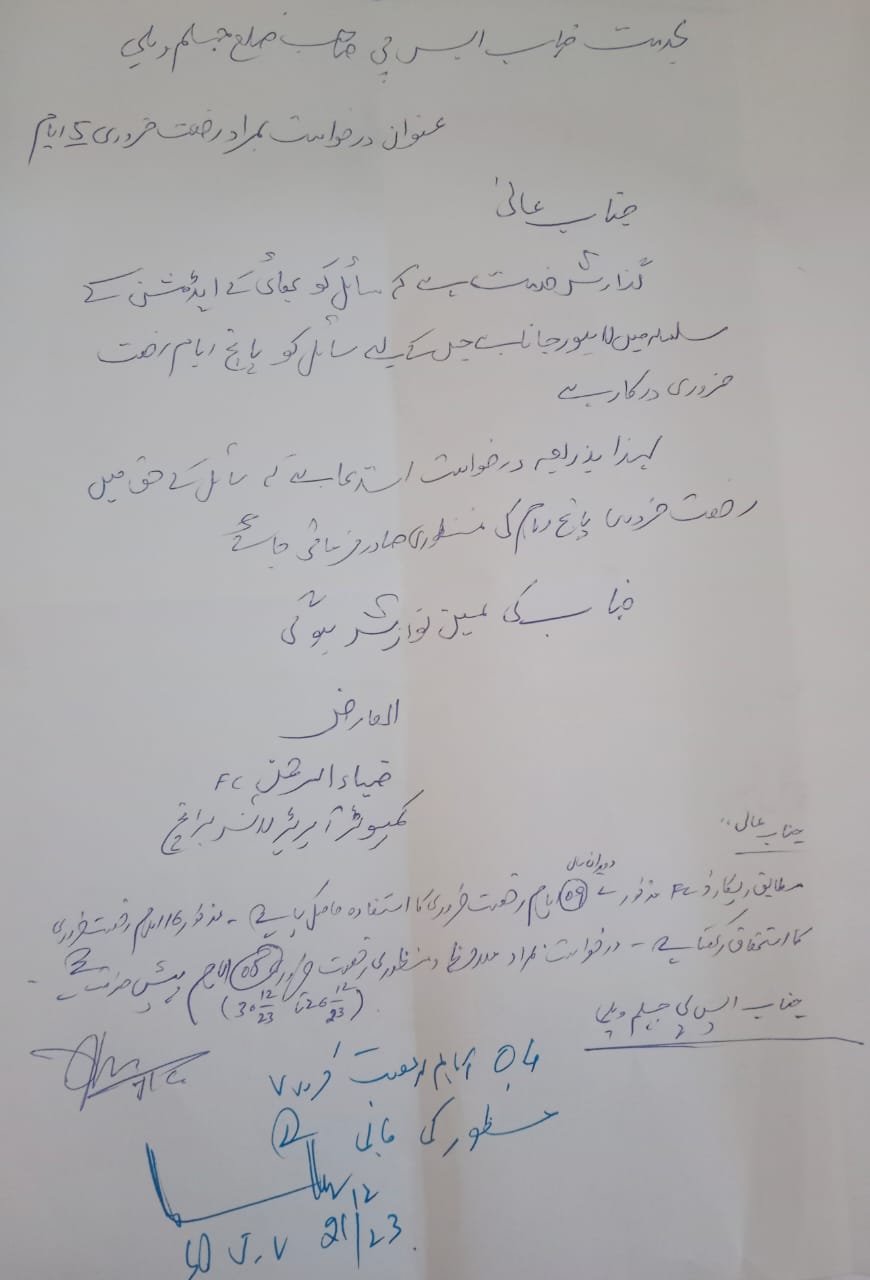 بخدمت جناب ایس پی صاحب ضلع جہلم ویلی
عنوان درخواست بمراد رخصت ضروری 5 ایام
جناب عالی
گذارش خدمت ہے کہ سائل کو بھائی کے ایڈمشن کے
سلسلہ میں لاہور جانا ہے جس کے لیے سائل کو پانچ ایام رخصت
ضروری درکار ہے
لہذا بذریعہ درخواست استدعا ہے کہ سائل کے حق میں
رخصت ضروری پانچ ایام کی منظوری صادر فرمائی جائے
جناب کی عین نوازش ہو گی
العارض
ضیاء الرحمٰن FC
کمپیوٹر آپریٹر لائسنس برانچ
جناب عالی..
دوران سال
مطابق ریکارڈ FC مذکور نے 09 ایام رخصت ضروری کا استفادہ حاصل کیا ہے - مذکور 16 ایام رخصت ضروری
کا استحقاق رکھتا ہے - درخواست بمراد ملاحظہ و منظوری رخصت ضروری 05 ایام پیش خدمت ہے -
(26 12/23 تا 30 12/23)
جناب ایس پی جہلم ویلی
04 ایام رخصت ضروری
منظور کی جاتی
SP J.V 21/12/23